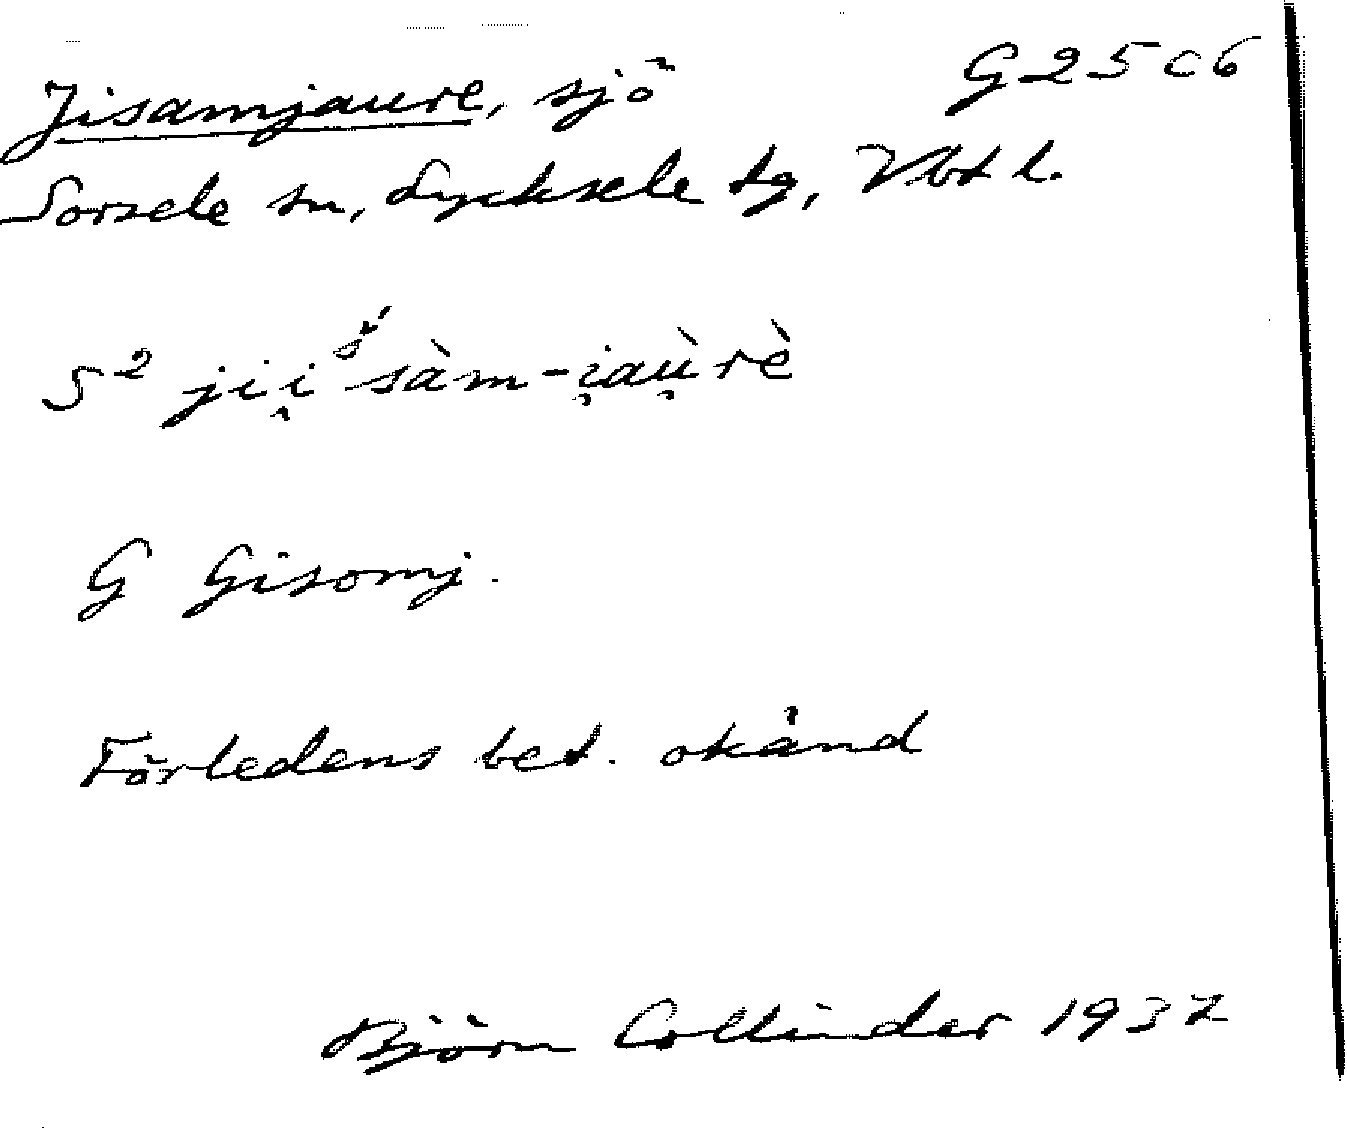 Jisamjaure, sjö G25c6
Sorsele sn, Lycksele tg, Vbt l.
S² ji̯i̯ˢ́sàm-i̯aù̯rè
G Gisomj.
Förledens bet. okänd
Björn Collinder 1937